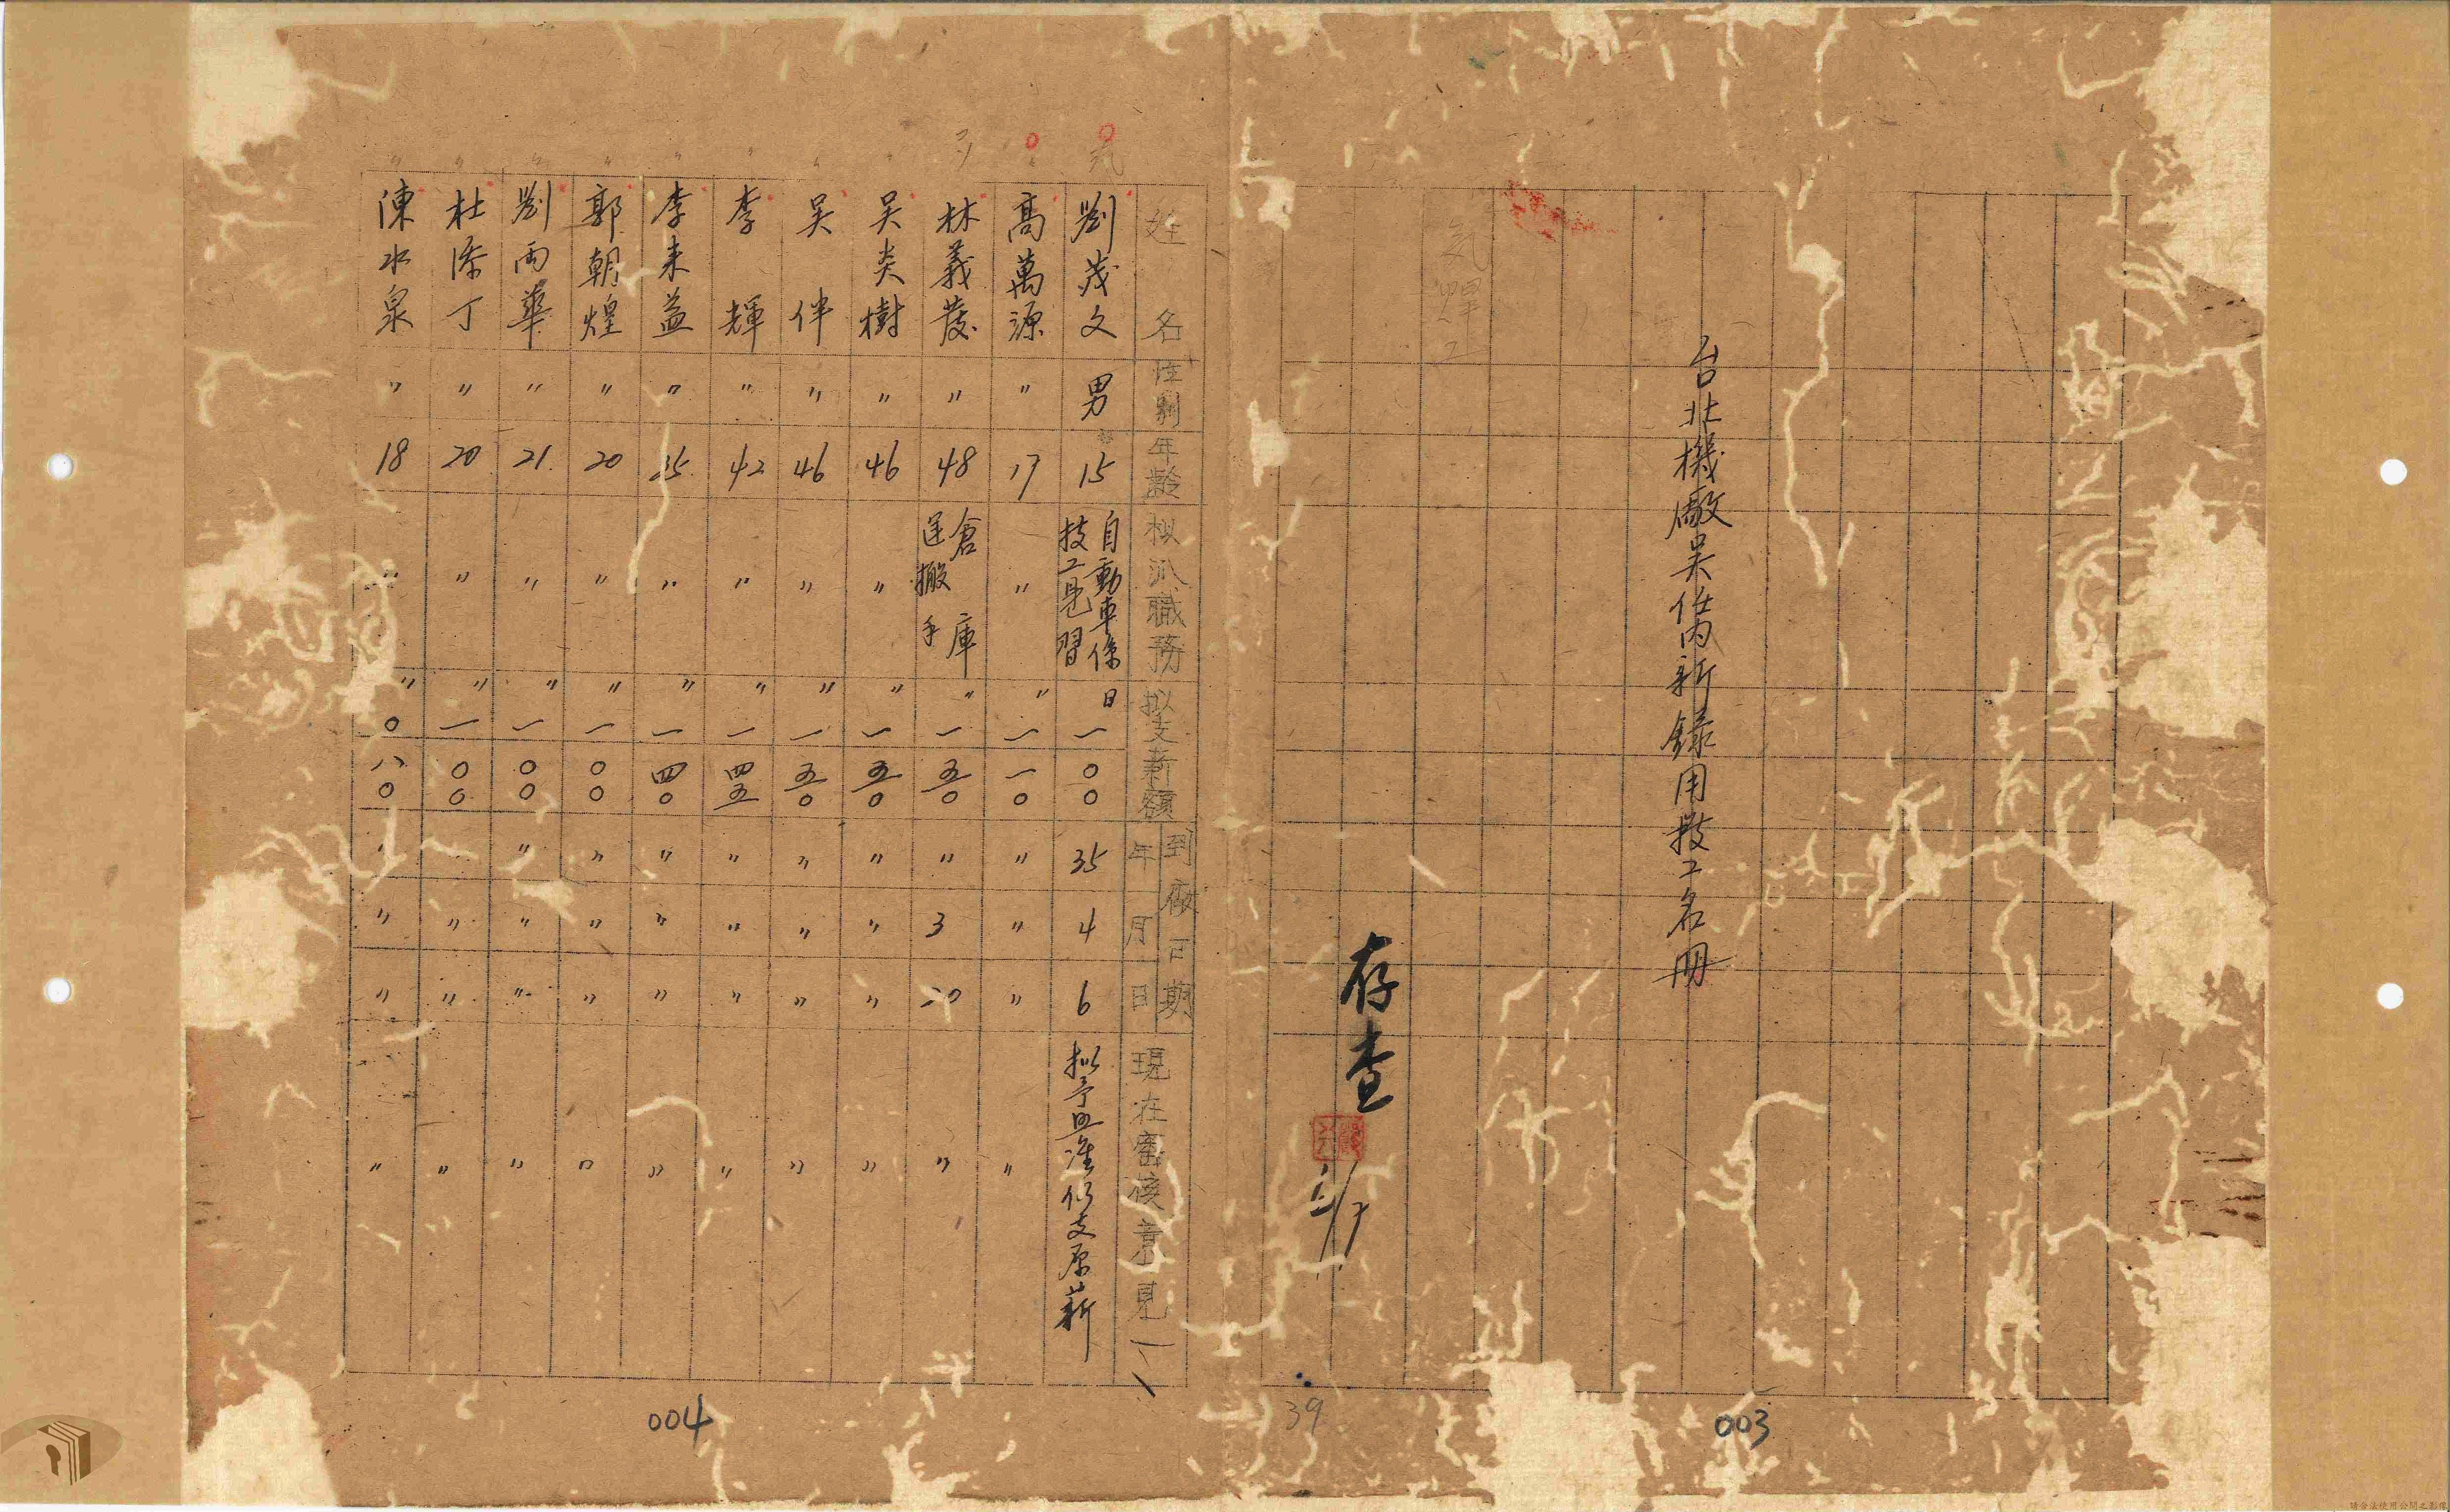 台北機廠吳任內新錄用技工名冊
存查
39
003
姓名 性別 年齡 擬派職務 擬支薪額 到廠日期 年 月 日 現在審核意見
劉茂文 男 15 自動車係技工見習 日一〇〇 35 4 6 拟予照准仍支原薪
高萬源 〃 17 〃 〃一一〇 〃 〃 〃 〃
林義發 〃 48 倉庫運搬手 〃一五〇 〃 3 20 〃
吴炎樹 〃 46 〃 〃一五〇 〃 〃 〃 〃
吴伴 〃 46 〃 〃一五〇 〃 〃 〃 〃
李輝 〃 42 〃 〃一四五 〃 〃 〃 〃
李来益 〃 35 〃 〃一四〇 〃 〃 〃 〃
郭朝煌 〃 20 〃 〃一〇〇 〃 〃 〃 〃
劉両華 〃 21 〃 〃一〇〇 〃 〃 〃 〃
杜添丁 〃 20 〃 〃一〇〇 〃 〃 〃
陳水泉 〃 18 〃 〃〇八〇 〃 〃 〃 〃
004